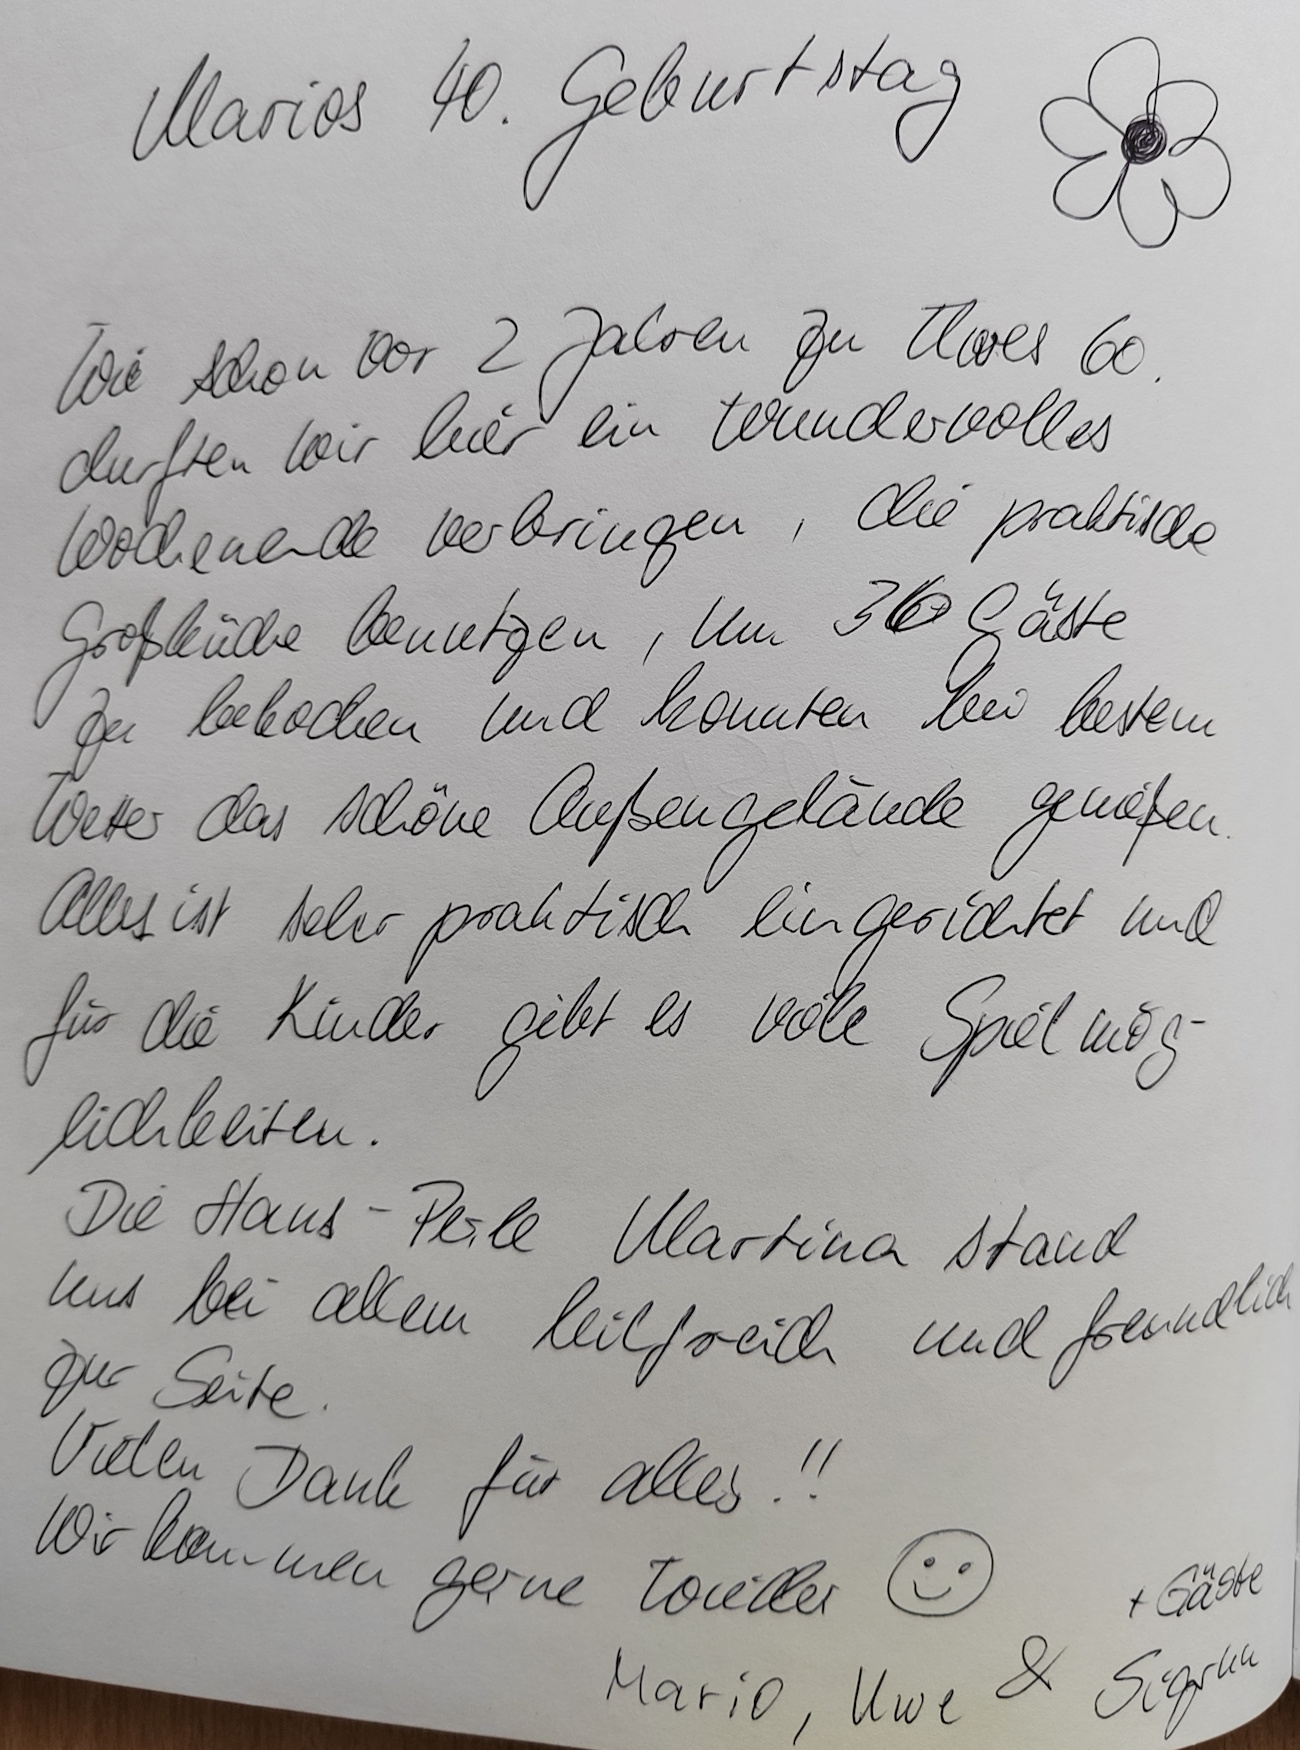 Marios 40. Geburtstag
Wie schon vor 2 Jahren zu Uwes 60.
durften wir hier ein wundervolles
Wochenende verbringen, die praktische
Großküche benutzen, um 36 Gäste
zu bekochen und konnten bei bestem
Wetter das schöne Außengelände genießen.
Alles ist sehr praktisch eingerichtet und
für die Kinder gibt es viele Spielmög-
lichkeiten.
Die Haus-Perle Martina stand
uns bei allem hilfreich und freundlich
zur Seite.
Vielen Dank für alles!!
Wir kommen gerne wieder
+ Gäste
Mario, Uwe & Sigrun